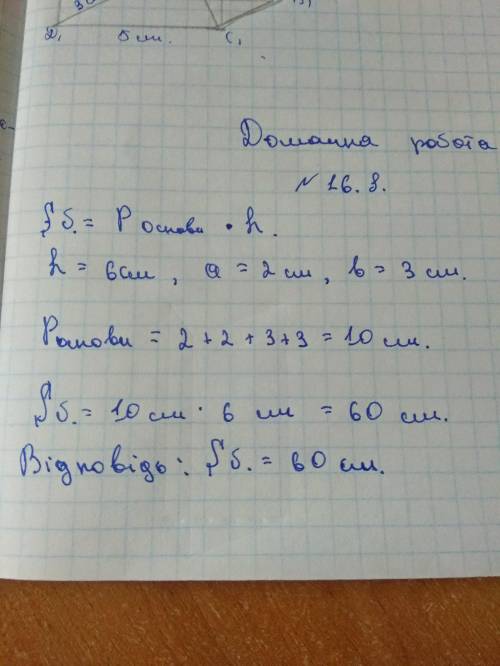 D₁ 5 см. C₁
Домашня робота
№ 16.8.
Sб. = Pоснови • h.
h = 6см, a = 2 см, b = 3 см.
Pоснови = 2 + 2 + 3 + 3 = 10 см.
Sб. = 10 см • 6 см = 60 см.
Відповідь: Sб. = 60 см.